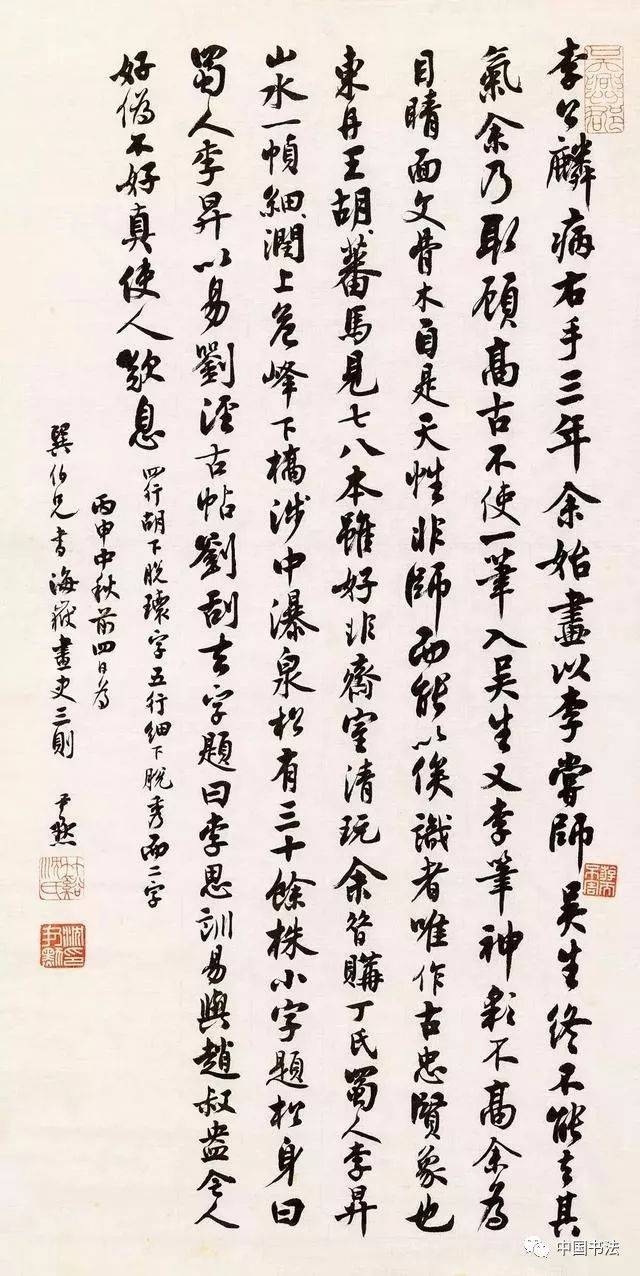 李公麟病右手三年余始畫以李嘗師吳生終不能去其
氣余乃取顧高古不使一筆入吳生又李筆神彩不高余為
目睛面文骨木自是天性非師而能以俟識者唯作古忠賢象也
東丹王胡蕃馬見七八本雖好非齋室清玩余昔購丁氏蜀人李昇
山水一幀細潤上危峰下橋涉中瀑泉松有三十餘株小字題松身曰
蜀人李昇以易劉涇古帖劉刮去字題曰李思訓易與趙叔盎今人
好偽不好真使人歎息
四行胡下脫瓌字五行細下脫秀而二字
丙申中秋前四日為
巽伯兄書海嶽畫史三則 尹默
竹谿沈氏
中国书法